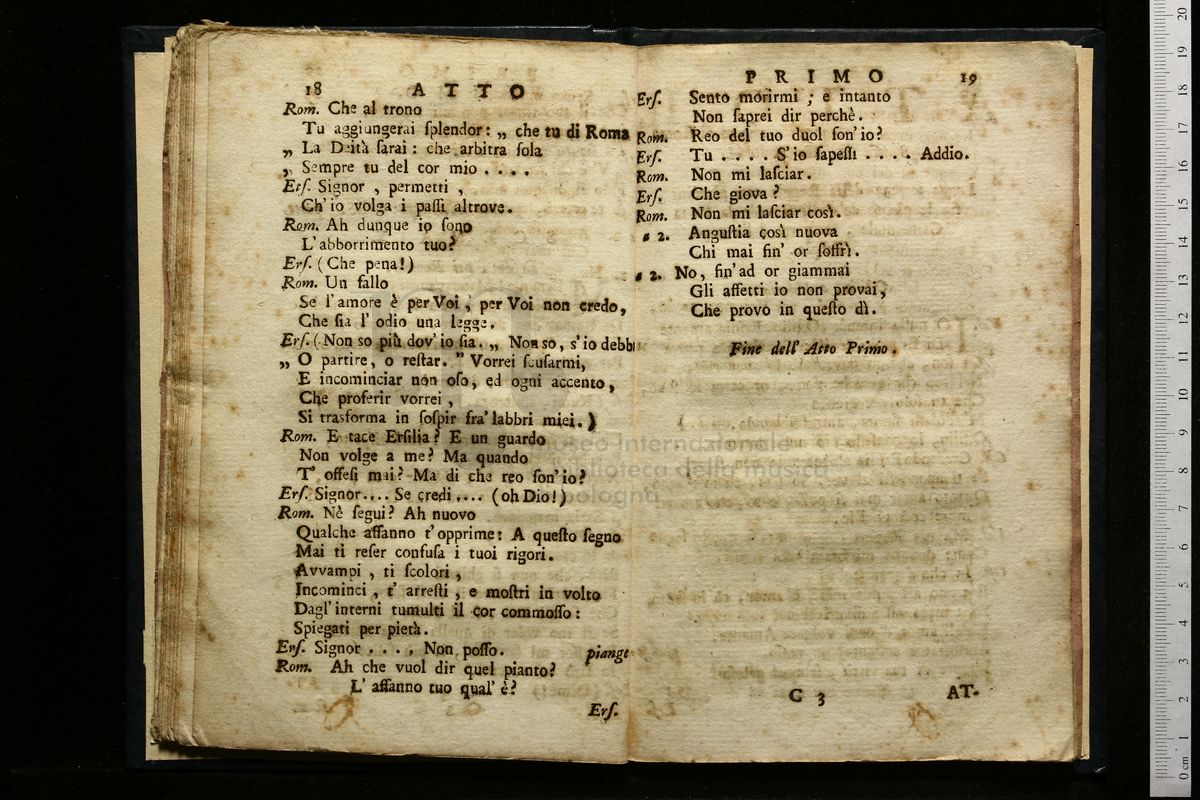 18 ATTO
Rom. Che al trono
Tu aggiungerai ſplendor: „ che tu di Roma
„ La Deità ſarai : che arbitra ſola
„ Sempre tu del cor mio . . . .
Erſ. Signor , permetti ,
Ch'io volga i paſſi altrove.
Rom. Ah dunque io ſono
L'abborrimento tuo?
Erſ. (Che pena!)
Rom. Un fallo
Se l'amore è per Voi, per Voi non credo,
Che ſia l'odio una legge.
Erſ. (Non so più dov'io ſia. „ Non so, s'io debb
„ O partire, o reſtar. " Vorrei ſcuſarmi,
E incominciar non oſo, ed ogni accento,
Che proferir vorrei ,
Si trasforma in ſoſpir fra'labbri miei.)
Rom. E tace Erſilia? E un guardo
Non volge a me? Ma quando
T' offeſi mai? Ma di che reo ſon'io?
Erſ. Signor.... Se credi .... (oh Dio!)
Rom. Nè ſegui? Ah nuovo
Qualche affanno t'opprime: A queſto ſegno
Mai ti reſer confuſa i tuoi rigori.
Avvampi , ti ſcolori ,
Incominci , t' arreſti , e moſtri in volto
Dagl'interni tumulti il cor commoſſo:
Spiegati per pietà.
Erſ. Signor . . . . Non poſſo. piange
Rom. Ah che vuol dir quel pianto?
L' affanno tuo qual' è?
Erſ.
PRIMO 19
Erſ. Sento morirmi ; e intanto
Non ſaprei dir perchè.
Rom. Reo del tuo duol ſon'io?
Erſ. Tu . . . . S'io ſapeſſi . . . . Addio.
Rom. Non mi laſciar.
Erſ. Che giova ?
Rom. Non mi laſciar così.
a 2. Anguſtia così nuova
Chi mai fin' or ſoffrì.
a 2. No, fin'ad or giammai
Gli affetti io non provai,
Che provo in queſto dì.
Fine dell' Atto Primo.
C 3 AT-
museo internazionale
biblioteca della musica
bologna
0 cm 1 2 3 4 5 6 7 8 9 10 11 12 13 14 15 16 17 18 19 20